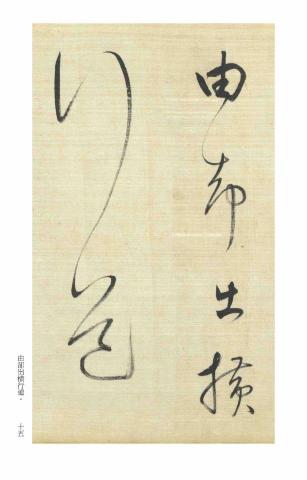 由部出橫
行道
由部出橫行道。
十五